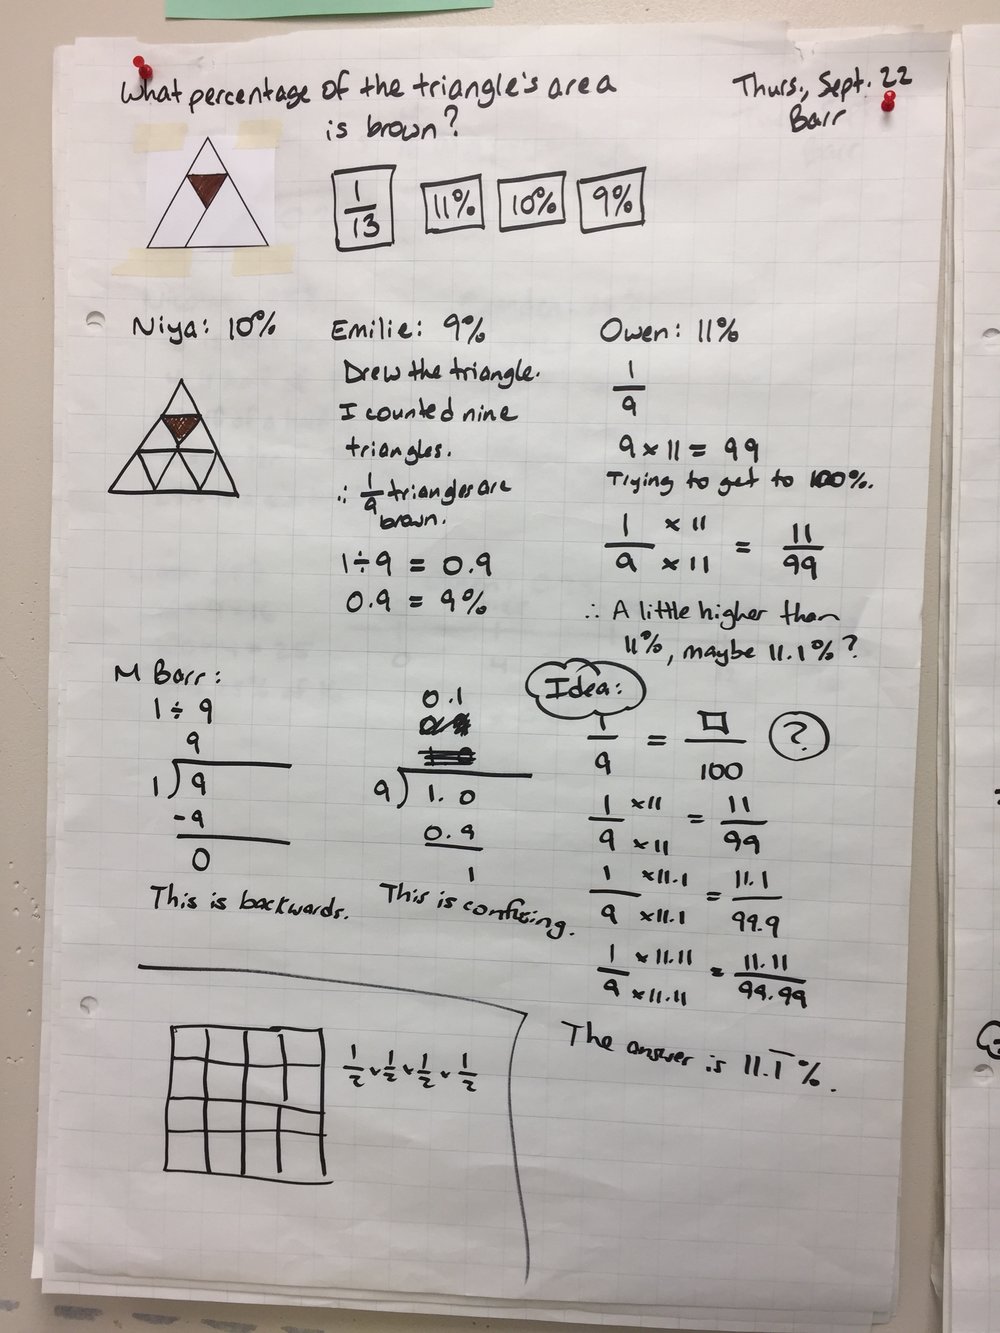 What percentage of the triangle's area
is brown?
Thurs., Sept. 22
Barr
1/13
11%
10%
9%
Niya: 10%
Emilie: 9%
Drew the triangle.
I counted nine
triangles.
∴ 1/9 triangles are
brown.
1÷9 = 0.9
0.9 = 9%
Owen: 11%
1/9
9 x 11 = 99
Trying to get to 100%.
1/9 x 11 / x 11 = 11/99
∴ A little higher than
11%, maybe 11.1%?
M Barr:
1 ÷ 9
9
1)9
-9
0
This is backwards.
0.1
9)1.0
0.9
1
This is confusing.
Idea:
1/9 = □/100 ?
1/9 x11 / x11 = 11/99
1/9 x11.1 / x11.1 = 11.1/99.9
1/9 x11.11 / x11.11 = 11.11/99.99
The answer is 11.1̅%.
1/2 × 1/2 × 1/2 × 1/2